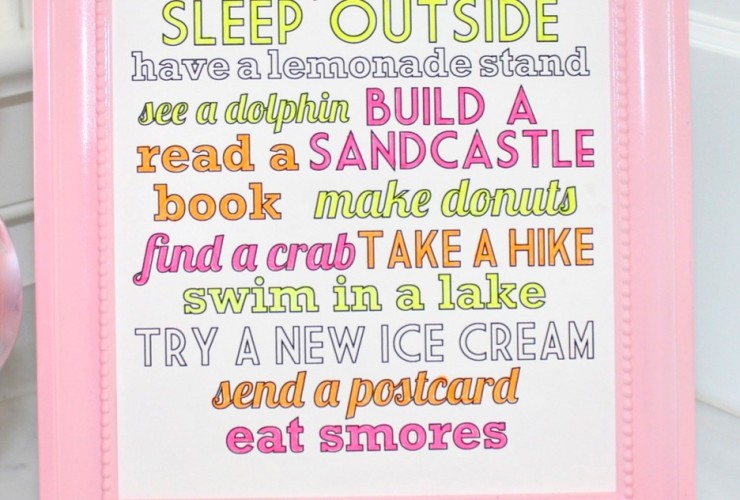 SLEEP OUTSIDE
have a lemonade stand
see a dolphin BUILD A
read a SANDCASTLE
book make donuts
find a crab TAKE A HIKE
swim in a lake
TRY A NEW ICE CREAM
send a postcard
eat smores